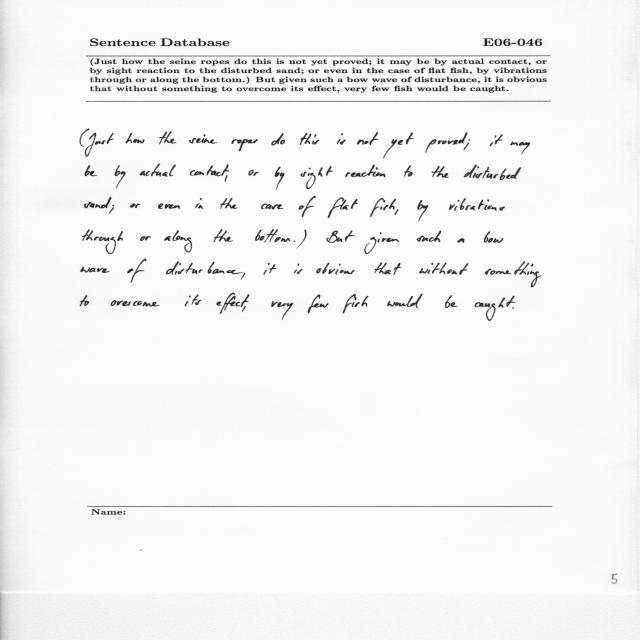 Sentence Database E06-046
(Just how the seine ropes do this is not yet proved; it may be by actual contact, or
by sight reaction to the disturbed sand; or even in the case of flat fish, by vibrations
through or along the bottom.) But given such a bow wave of disturbance, it is obvious
that without something to overcome its effect, very few fish would be caught.
(Just how the seine ropes do this is not yet proved; it may
be by actual contact, or by sight reaction to the disturbed
sand; or even in the case of flat fish, by vibrations
through or along the bottom.) But given such a bow
wave of disturbance, it is obvious that without something
to overcome its effect, very few fish would be caught.
Name:
5